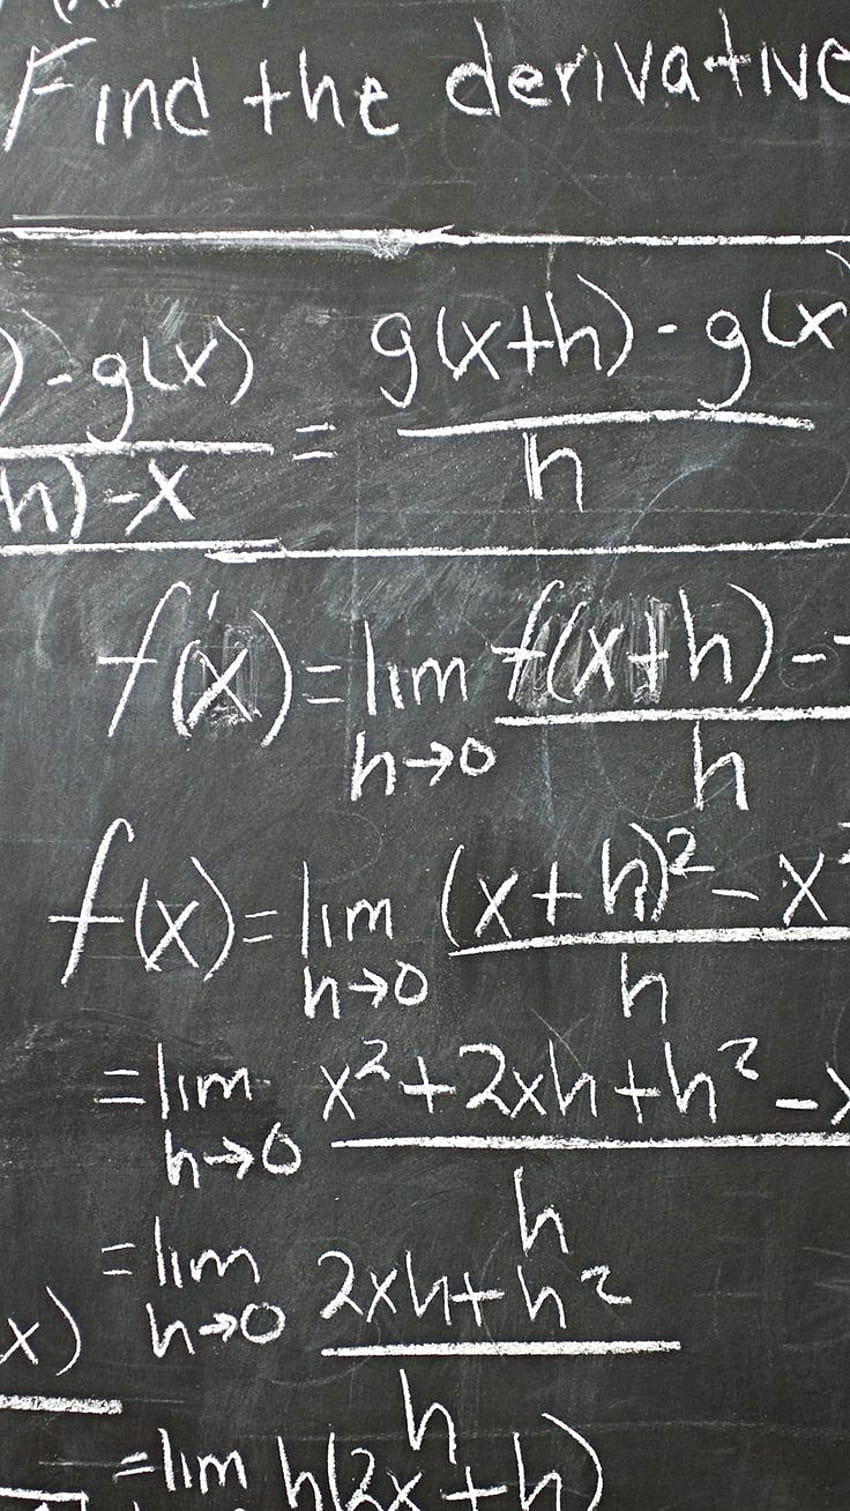 Find the derivative
)-g(x) / h)-x = g(x+h)-g(x / h
f'(x)=lim h→0 f(x+h)- / h
f(x)=lim h→0 (x+h)²-x² / h
=lim h→0 x²+2xh+h²-x / h
=lim h→0 2xh+h² / h
x)
=lim h(2x+h)